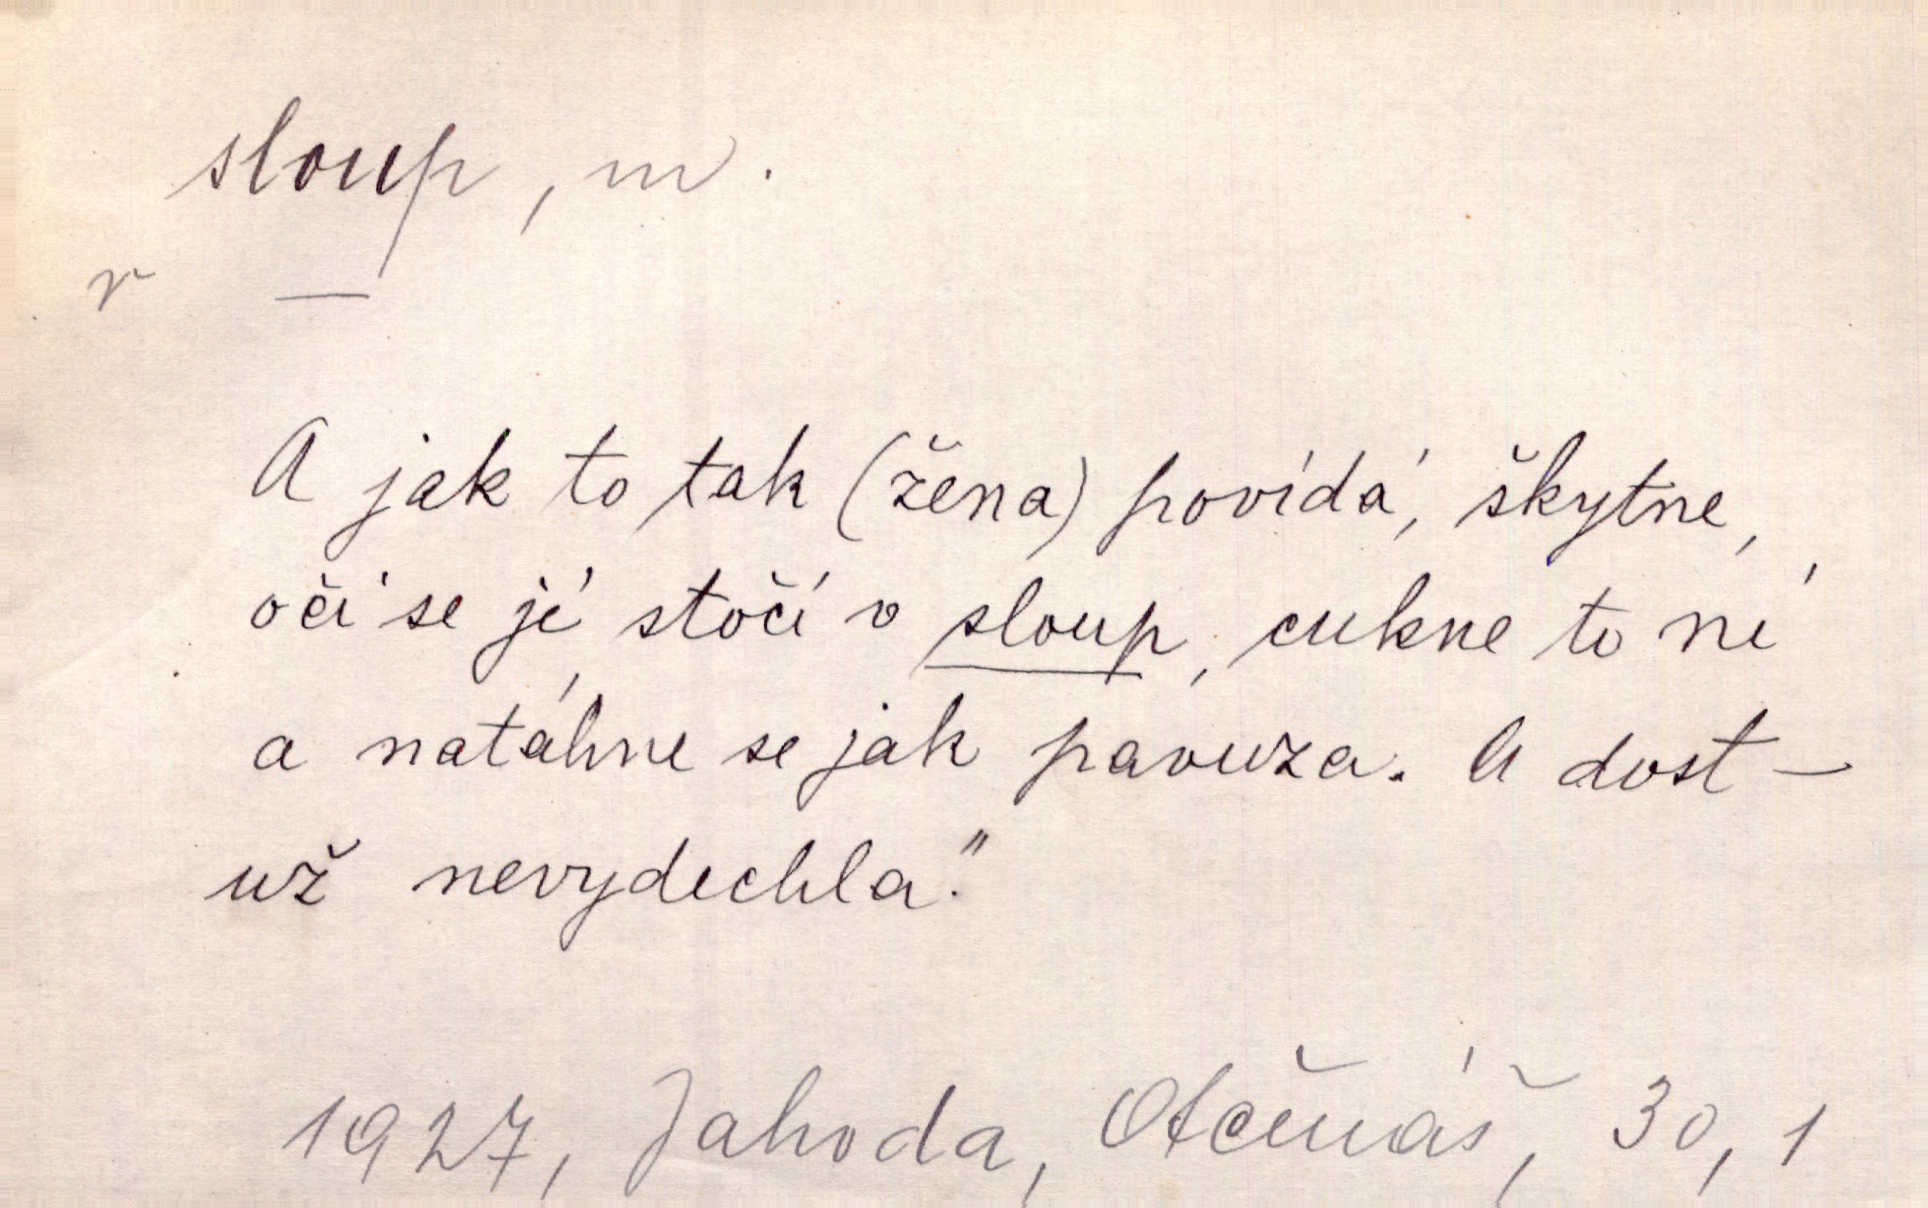 sloup, m.
r —
A jak to tak (žena) povídá, škytne,
oči se jí stočí v sloup, cukne to ní
a natáhne se jak pavuza. A dost –
už nevydechla."
1927, Jahoda, Otčenáš, 30, 1